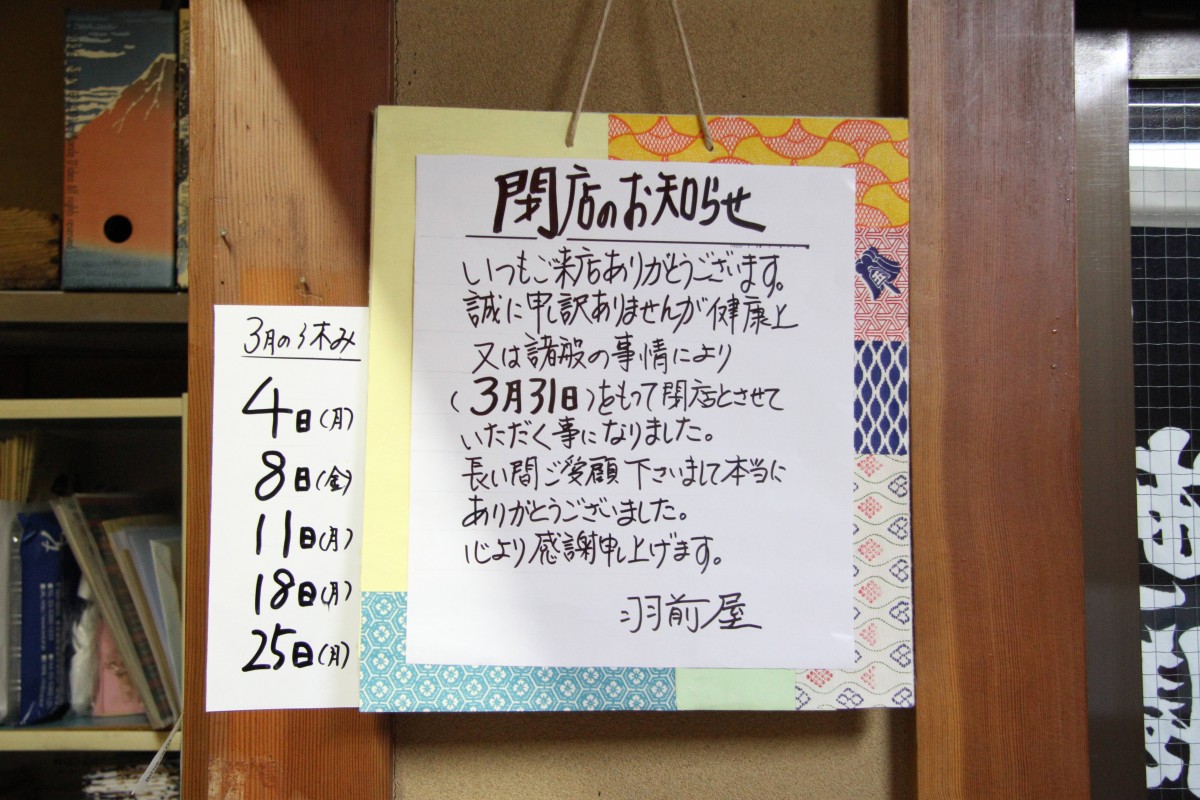 閉店のお知らせ
いつもご来店ありがとうございます。
誠に申し訳ありませんが健康上
又は諸般の事情により
(3月31日)をもって閉店とさせて
いただく事になりました。
長い間ご愛顧下さいまして本当に
ありがとうございました。
心より感謝申し上げます。
羽前屋
3月の休み
4日(月)
8日(金)
11日(月)
18日(月)
25日(月)